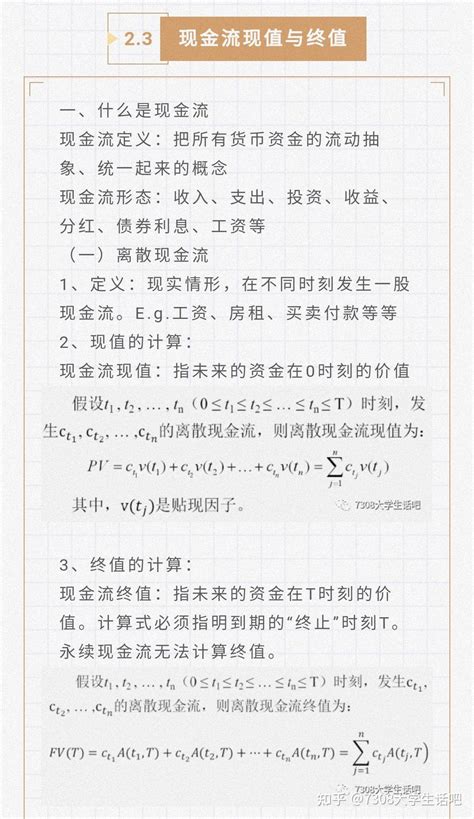 2.3 现金流现值与终值
一、什么是现金流
现金流定义：把所有货币资金的流动抽
象、统一起来的概念
现金流形态：收入、支出、投资、收益、
分红、债券利息、工资等
（一）离散现金流
1、定义：现实情形，在不同时刻发生一股
现金流。E.g.工资、房租、买卖付款等等
2、现值的计算：
现金流现值：指未来的资金在0时刻的价值
假设t₁, t₂, … , tₙ（0≤t₁≤t₂≤…≤tₙ≤T）时刻，发
生c_{t₁}, c_{t₂}, … ,c_{tₙ}的离散现金流，则离散现金流现值为：
PV = c_{t₁}v(t₁) + c_{t₂}v(t₂) + … + c_{tₙ}v(tₙ) = \sum_{j=1}^{n} c_{t_j}v(t_j)
其中，v(t_j)是贴现因子。
7308大学生活吧
3、终值的计算：
现金流终值：指未来的资金在T时刻的价
值。计算式必须指明到期的“终止”时刻T。
永续现金流无法计算终值。
假设t₁, t₂, … , tₙ（0≤t₁≤t₂≤…≤tₙ≤T）时刻，发生c_{t₁},
c_{t₂}, … ,c_{tₙ}的离散现金流，则离散现金流终值为：
FV(T) = c_{t₁}A(t₁,T) + c_{t₂}A(t₂,T) + ⋯ + c_{tₙ}A(tₙ,T) = \sum_{j=1}^{n} c_{t_j}A(t_j,T)
7308大学生活吧
知乎 @7308大学生活吧